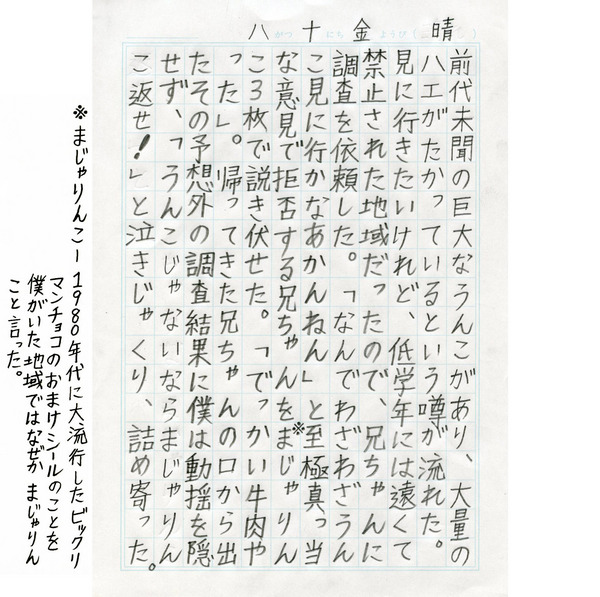 八 がつ 十 にち 金 ようび ( 晴 )
前代未聞の巨大なうんこがあり、大量の
ハエがたかっているという噂が流れた。
見に行きたいけれど、低学年には遠くて
禁止された地域だったので、兄ちゃんに
調査を依頼した。「なんでわざわざうん
こ見に行かなあかんねん」と至極真っ当
な意見で拒否する兄ちゃんを※まじゃりん
こ3枚で説き伏せた。「でっかい牛肉や
った」。帰ってきた兄ちゃんの口から出
たその予想外の調査結果に僕は動揺を隠
せず、「うんこじゃないならまじゃりん
こ返せ!」と泣きじゃくり、詰め寄った。
※まじゃりんこー1980年代に大流行したビックリ
マンチョコのおまけシールのことを
僕がいた地域ではなぜかまじゃりん
こと言った。